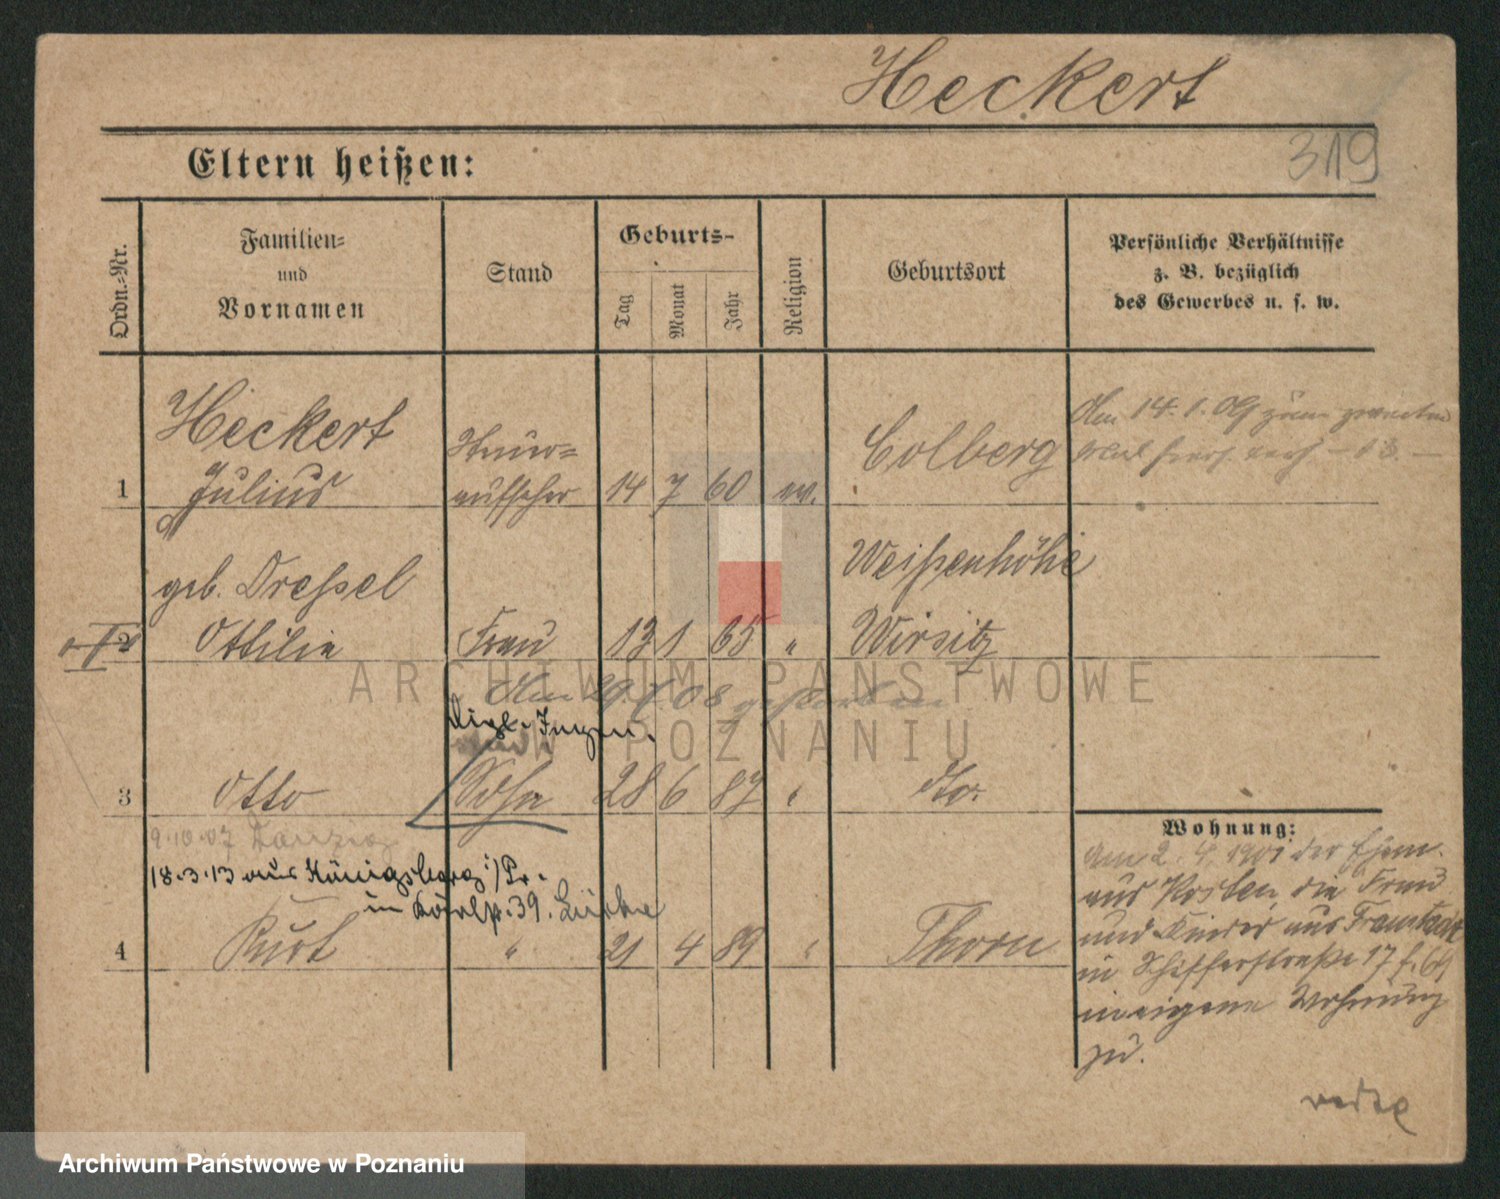 Heckert
319
Eltern heißen:
Ordn.-Nr.
Familien-
und
Vornamen
Stand
Geburts-
Tag
Monat
Jahr
Religion
Geburtsort
Persönliche Verhältnisse
z. B. bezüglich
des Gewerbes u. s. w.
Am 14.1.09 zum zweiten
Mal
Heckert
Steuer-
Colberg
1 Julius aufseher 14 7 60 ev.
geb. Dressel
Weißenhöhe
2 Ottilie Frau 13 1 65 " Wirsitz
Am 29. 08 gestorben
Dipl. Ingen.
3 Otto Sohn 28 6 87 " dto.
9.10.07 Danzig
18.3.13 aus Königsberg i/Pr.
in 39.
4 Kurt " 21 4 89 " Thorn
Wohnung:
Am 2. 4. 1901 der Ehem.
aus Posten, die Frau
und Kinder aus Fraustadt
in Schifferstraße 17
in eigene Wohnung
zu.
ARCHIWUM PAŃSTWOWE
W POZNANIU
Archiwum Państwowe w Poznaniu